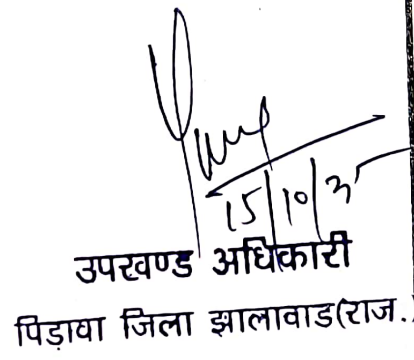 15/10/25
उपखण्ड अधिकारी
पिड़ावा जिला झालावाड(राज.)